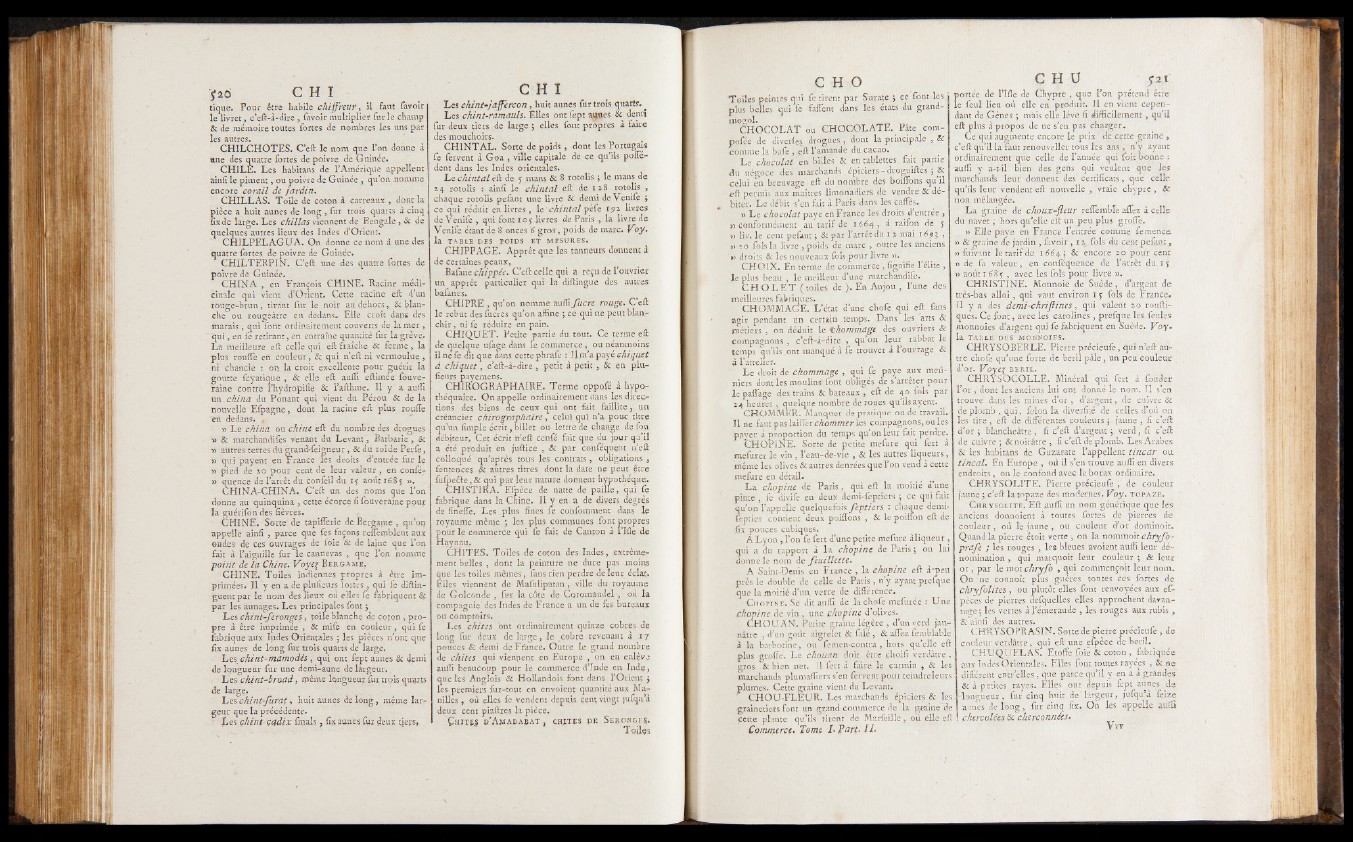 520 CHI
tique. Pour être habile chiffreur, il faut ſavoir
le livret, c'eſt-à-dire, ſavoir multiplier ſur le champ
& de mémoire toutes ſortes de nombres les uns par
les autres.
CHILCHOTES. C'eſt le nom que l'on donne à
une des quatre ſortes de poivre de Guinée.
CHILE. Les habitans de l'Amérique appellent
ainſi le piment, ou poivre de Guinée, qu'on nomme
encore corail de jardin.
CHILLAS. Toile de coton à carreaux, dont la
pièce a huit aunes de long, ſur trois quarts à cinq
ſix de large. Les chillas viennent de Bengale, & de
quelques autres lieux des Indes d'Orient.
CHILPELAGUA. On donne ce nom à une des
quatre ſortes de poivre de Guinée.
CHILTERPIN. C'eſt une des quatre ſortes de
poivre de Guinée.
CHINA, en François CHINE. Racine médi-
cinale qui vient d'Orient. Cette racine eſt d'un
rouge-brun, tirant ſur le noir au dehors, & blan-
che ou rougeâtre en dedans. Elle croît dans des
marais, qui ſont ordinairement couverts de la mer,
qui, en ſe retirant, en entraîne quantité ſur la grève.
La meilleure eſt celle qui eſt fraîche & ferme, la
plus rouſſe en couleur, & qui n'eſt ni vermoulue,
ni chancie : on la croit excellente pour guérir la
goutte ſcyatique, & elle eſt auſſi eſtimée ſouve-
raine contre l'hydropiſie & l'aſthme. Il y a auſſi
un china du Ponant qui vient du Pérou & de la
nouvelle Eſpagne, dont la racine eſt plus rouſſe
en dedans.
» Le china ou chine eſt du nombre des drogues
» & marchandiſes venant du Levant, Barbarie, &
» autres terres du grand-ſeigneur, & du roi de Perſe,
» qui payent en France les droits d'entrée ſur le
» pied de 20 pour cent de leur valeur, en conſé-
» quence de l'arrêt du conſeil du 15 août 1685 ».
CHINA-CHINA. C'eſt un des noms que l'on
donne au quinquina, cette écorce ſi ſouveraine pour
la guériſon des fièvres.
CHINE. Sorte de tapiſſerie de Bergame, qu'on
appelle ainſi, parce que ſes façons reſſemblent aux
ondes de ces ouvrages de ſoie & de laine que l'on
fait à l'aiguille ſur le cannevas, que l'on nomme
point de la Chine. Voyez BERGAME.
CHINE. Toiles indiennes propres à être im-
primées. Il y en a de pluſieurs ſortes, qui ſe diſtin-
guent par le nom des lieux où elles ſe fabriquent &
par les aunages. Les principales ſont ;
Les chint-ſeronges, toile blanche de coton, pro-
pre à être imprimée, & miſe en couleur, qui ſe
fabrique aux Indes Orientales ; les pièces n'ont que
ſix aunes de long ſur trois quarts de large.
Les chint-mamodés, qui ont ſept aunes & demi
de longueur ſur une demi-aune de largeur.
Les chint-broad, même longueur ſur trois quarts
de large.
Les chint-ſurat, huit aunes de long, même lar-
geur que la précédente.
Les chint-cadix ſmals, ſix aunes ſur deux tiers,
CHI
Les chint-jaffercon, huit aunes ſur trois quarts.
Les chint-ramauls. Elles ont ſept aunes & demi
ſur deux tiers de large ; elles ſont propres à faire
des mouchoirs.
CHINTAL. Sorte de poids, dont les Portugais
ſe ſervent à Goa, ville capitale de ce qu'ils poſſè-
dent dans les Indes orientales.
Le chintal eſt de 5 mans & 8 rotolis ; le mans de
24 rotolis : ainſi le chintal eſt de 128 rotolis,
chaque rotolis peſant une livre & demi de Veniſe ;
ce qui réduit en livres, le chintal pèſe 192 livres
de Veniſe, qui font 105 livres de Paris, la livre de
Veniſe étant de 8 onces 6 gros, poids de marc. Voy.
la TABLE DES POIDS ET MESURES.
CHIPPAGE. Apprêt que les tanneurs donnent à
de certaines peaux.
Baſane chippée. C'eſt celle qui a reçu de l'ouvrier
un apprêt particulier qui la diſtingue des autres
baſanes.
CHIPRE, qu'on nomme auſſi ſucre rouge. C'eſt
le rebut des ſucres qu'on affine ; ce qui ne peut blan-
chir, ni ſe réduire en pain.
CHIQUET. Petite partie du tout. Ce terme eſt
de quelque uſage dans le commerce, ou néanmoins
il ne ſe dit que dans cette phraſe : Il m'a payé chiquet
à chiquet, c'eſt-à-dire, petit à petit, & en plu-
ſieurs payemens.
CHIROGRAPHAIRE. Terme oppoſé à hypo-
théquaire. On appelle ordinairement dans les direc-
tions des biens de ceux qui ont fait faillite, un
créancier chirographaire, celui qui n'a pour titre
qu'un ſimple écrit, billet ou lettre de change de ſon
débiteur. Cet écrit n'eſt cenſé fait que du jour qu'il
a été produit en juſtice, & par conſéquent n'eſt
colloqué qu'après tous les contrats, obligations,
ſentences & autres titres dont la date ne peut être
ſuſpecte, & qui par leur nature donnent hypothéque.
CHISTIRA. Eſpèce de natte de paille, qui ſe
fabrique dans la Chine. Il y en a de divers degrés
de fineſſe. Les plus fines ſe conſomment dans le
royaume même ; les plus communes ſont propres
pour le commerce qui ſe fait de Canton à l'Iſle de
Haynna.
CHITES. Toiles de coton des Indes, extrême-
ment belles, dont la peinture ne dure pas moins
que les toiles mêmes, ſans rien perdre de leur éclat.
Elles viennent de Maſulipatan, ville du royaume
de Golconde, ſur la côte de Coromandel, où la
compagnie des Indes de France a un de ſes bureaux
ou comptoirs.
Les chites ont ordinairement quinze cobres de
long ſur deux de large, le cobre revenant à 17
pouces & demi de France. Outre le grand nombre
de chites qui viennent en Europe, on en enlève
auſſi beaucoup pour le commerce d'Inde en Inde,
que les Anglois & Hollandois font dans l'Orient ;
les premiers ſur-tout en envoient quantité aux Ma-
nilles, où elles ſe vendent depuis cent vingt juſqu'à
deux cent piaſtres la pièce.
CHITES D'AMADABAT, CHITES DE SERONGES.
Toiles
CHO
Toiles peintes qui ſe tirent par Surate ; ce ſont les
plus belles qui ſe faſſent dans les états du grand-
mogol.
CHOCOLAT ou CHOCOLATE. Pâte com-
poſée de diverſes drogues, dont la principale, &
comme la baſe, eſt l'amande du cacao.
Le chocolat en billes & en tablettes fait partie
du négoce des marchands épiciers-droguiſtes ; &
celui en breuvage eſt du nombre des boiſſons qu'il
eſt permis aux maîtres limonadiers de vendre & dé-
biter. Le débit s'en fait à Paris dans les caffés.
» Le chocolat paye en France les droits d'entrée,
» conformément au tarif de 1664, à raiſon de 5
» liv. le cent peſant ; & par l'arrêt du 12 mai 1693,
» 10 ſols la livre, poids de marc, outre les anciens
» droits & les nouveaux ſols pour livre ».
CHOIX. En terme de commerce, ſignifie l'élite,
le plus beau, le meilleur d'une marchandiſe.
CHOLET ( toiles de ). En Anjou, l'une des
meilleures fabriques.
CHOMMAGE. L'état d'une choſe qui eſt ſans
agir pendant un certain temps. Dans les arts &
métiers, on déduit le chommage des ouvriers &
compagnons, c'eſt-à-dire, qu'on leur rabbat le
temps qu'ils ont manqué à ſe trouver à l'ouvrage &
à l'attelier.
Le droit de chommage, qui ſe paye aux meû-
niers dont les moulins ſont obligés de s'arrêter pour
le paſſage des trains & bateaux, eſt de 40 ſols par
24 heures, quelque nombre de roues qu'ils ayent.
CHOMMER. Manquer de pratique ou de travail.
Il ne faut pas laiſſer chommer les compagnons, ou les
payer à proportion du temps qu'on leur fait perdre.
CHOPINE. Sorte de petite meſure qui ſert à
meſurer le vin, l'eau-de-vie, & les autres liqueurs,
même les olives & autres denrées que l'on vend à cette
meſure en détail.
La chopine de Paris, qui eſt la moitié d'une
pinte, ſe diviſe en deux demi-ſeptiers ; ce qui fait
qu'on l'appelle quelquefois ſeptiers : chaque demi-
ſeptier contient deux poiſſons, & le poiſſon eſt de
ſix pouces cubiques.
A Lyon, l'on ſe ſert d'une petite meſure à liqueur,
qui a du rapport à la chopine de Paris ; on lui
donne le nom de feuillette.
A Saint-Denis en France, la chopine eſt à-peu
près le double de celle de Paris, n'y ayant preſque
que la moitié d'un verre de différence.
CHOPINE. Se dit auſſi de la choſe meſurée : Une
chopine de vin, une chopine d'olives.
CHOUAN. Petite graine légère, d'un verd jau-
nâtre, d'un goût aigrelet & ſalé, & aſſez ſemblable
à la barbotine, ou ſemen-contra, hors qu'elle eſt
plus groſſe. Le chouan doit être choiſi verdâtre,
gros & bien net. Il ſert à faire le carmin, & les
marchands plumaſſiers s'en ſervent pour teindre leurs
plumes. Cette graine vient du Levant.
CHOU-FLEUR. Les marchands épiciers & les
grainetiers font un grand commerce de la graine de
cette plante qu'ils tirent de Marſeille, où elle eſt
Commerce. Tome I. Part. II.
CHU 521
portée de l'Iſle de Chypre, que l'on prétend être
le ſeul lieu où elle en produit. Il en vient cepen-
dant de Gênes ; mais elle lève ſi difficilement, qu'il
eſt plus à propos de ne s'en pas charger.
Ce qui augmente encore le prix de cette graine,
c'eſt qu'il la faut renouveller tous les ans, n'y ayant
ordinairement que celle de l'année qui ſoit bonne :
auſſi y a-t-il bien des gens qui veulent que les
marchands leur donnent des certificats, que celle
qu'ils leur vendent eſt nouvelle, vraie chypre, &
non mélangée.
La graine de choux-fleur reſſemble aſſez à celle
du navet, hors qu'elle eſt un peu plus groſſe.
» Elle paye en France l'entrée comme ſemence
» & graine de jardin, ſavoir, 12 ſols du cent peſant,
» ſuivant le tarif de 1664 ; & encore 20 pour cent
» de ſa valeur, en conſéquence de l'arrêt du 15
» août 1685, avec les ſols pour livre ».
CHRISTINE. Monnoie de Suède, d'argent de
très-bas alloi, qui vaut environ 15 ſols de France.
Il y a des demi-chriſtines, qui valent 10 rouſti-
ques. Ce ſont, avec les carolines, preſque les ſeules
monnoies d'argent qui ſe fabriquent en Suède. Voy.
la TABLE DES MONNOIES.
CHRYSOBERLE. Pierre précieuſe, qui n'eſt au-
tre choſe qu'une ſorte de beril pâle, un peu couleur
d'or. Voyez BERIL.
CHRYSOCOLLE. Minéral qui ſert à ſonder
l'or, dont les anciens lui ont donné le nom. Il s'en
trouve dans les mines d'or, d'argent, de cuivre &
de plomb, qui, ſelon la diverſité de celles d'où on
les tire, eſt de différentes couleurs ; jaune, ſi c'eſt
d'or ; blancheâtre, ſi c'eſt d'argent ; verd, ſi c'eſt
de cuivre ; & noirâtre, ſi c'eſt de plomb. Les Arabes
& les habitans de Guzarate l'appellent tincar ou
tincal. En Europe, où il s'en trouve auſſi en divers
endroits, on le confond avec le borax ordinaire.
CHRYSOLITE. Pierre précieuſe, de couleur
jaune ; c'eſt la topaze des modernes. Voy. TOPAZE.
CHRYSOLITE. Eſt auſſi un nom générique que les
anciens donnoient à toutes ſortes de pierres de
couleur, où le jaune, ou couleur d'or dominoit.
Quand la pierre étoit verte, on la nommoit chryſo-
praſe ; les rouges, les bleues avoient auſſi leur dé-
nomination, qui marquoit leur couleur ; & leur
or, par le mot chryſo, qui commençoit leur nom.
On ne connoît plus guères toutes ces ſortes de
chryſolites, ou plutôt elles ſont renvoyées aux eſ-
pèces de pierres deſquelles elles approchent davan-
tage ; les vertes à l'émeraude, les rouges aux rubis,
& ainſi des autres.
CHRYSOPRASIN. Sorte de pierre précieuſe, de
couleur verdâtre, qui eſt une eſpèce de beril.
CHUQUELAS. Étoffe ſoie & coton, fabriquée
aux Indes Orientales. Elles ſont toutes rayées, & ne
diffèrent entr'elles, que parce qu'il y en a à grandes
& à petites rayes. Elles ont depuis ſept aunes de
longueur, ſur cinq huit de largeur, juſqu'à ſeize
aunes de long, ſur cinq ſix. On les appelle auſſi
chercolées & cherconnées.
Vvv